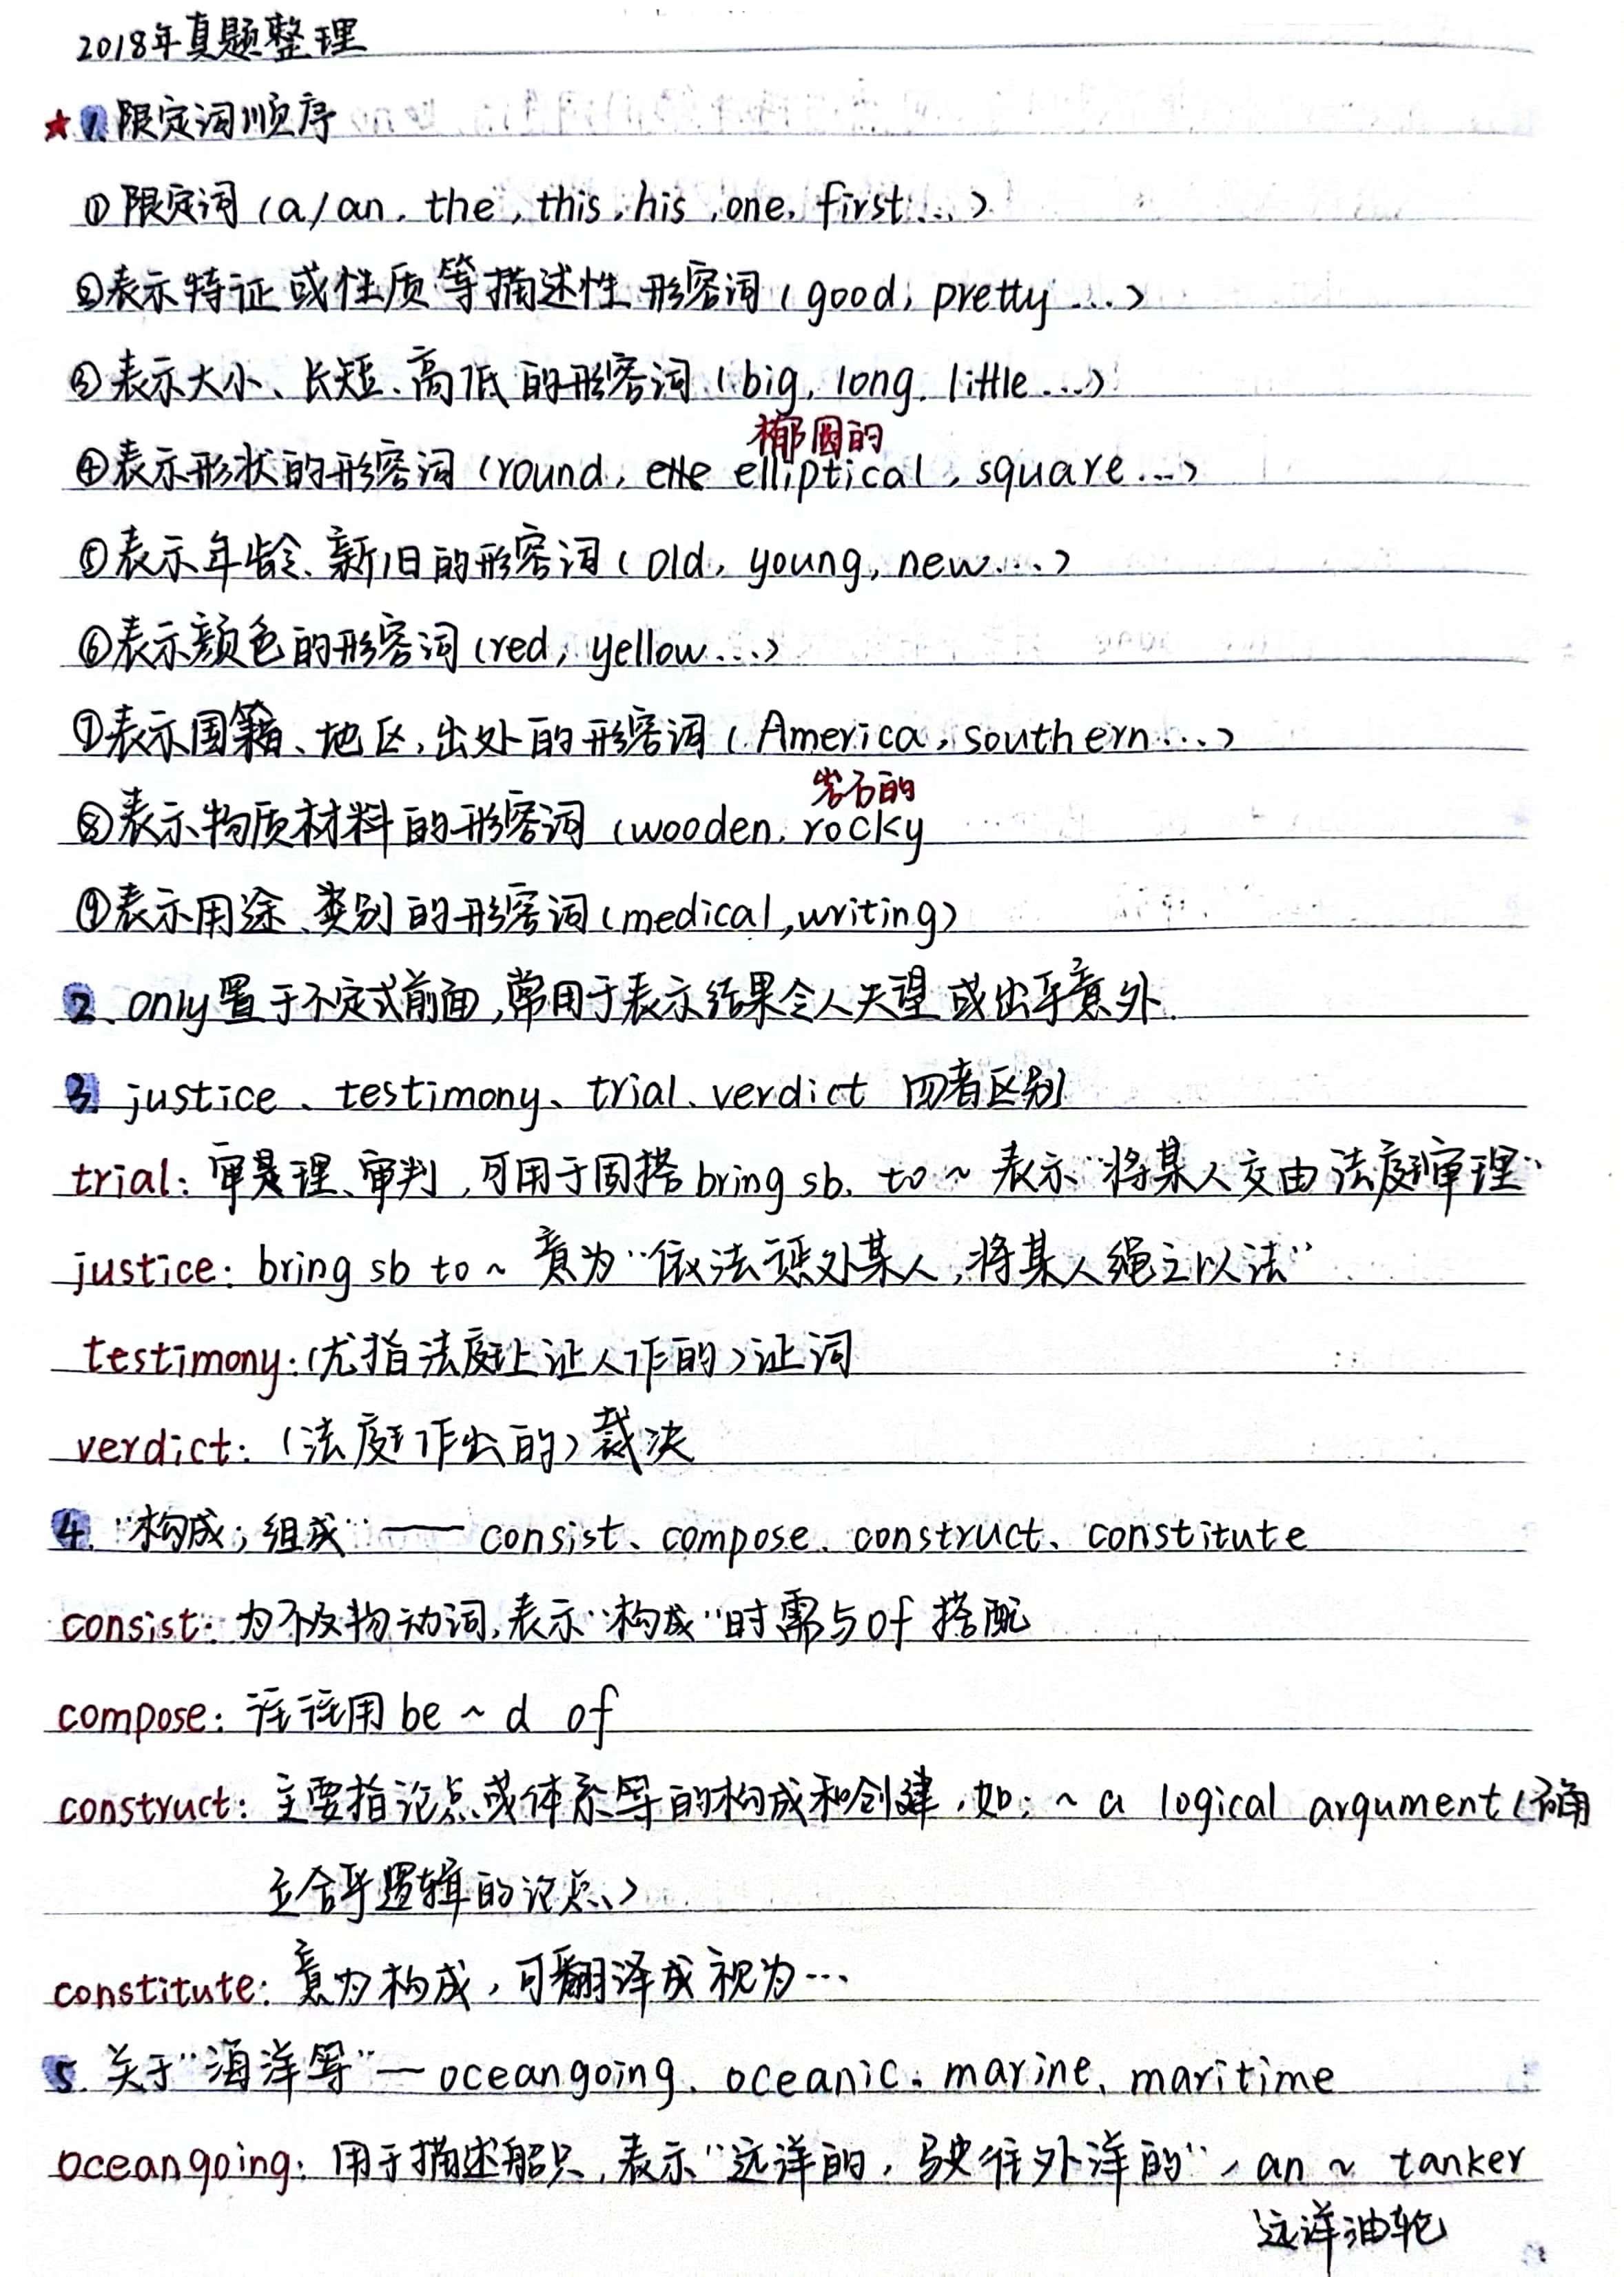 2018年真题整理
★1.限定词顺序
①限定词(a/an, the, this, his, one, first...)
②表示特证或性质等描述性形容词(good, pretty...)
③表示大小、长短、高低的形容词(big, long, little...)
椰圆的
④表示形状的形容词(round, elliptical, square...)
⑤表示年龄、新旧的形容词(old, young, new...)
⑥表示颜色的形容词(red, yellow...)
⑦表示国籍、地区,出处的形容词(America, southern...)
岩石的
⑧表示物质材料的形容词(wooden, rocky
⑨表示用途、类别的形容词(medical,writing)
2. only置于不定式前面,常用于表示结果令人失望或出乎意外.
3. justice、testimony、trial、verdict 四者区别
trial: 审理、审判,可用于固搭bring sb. to ~ 表示“将某人交由法庭审理”
justice: bring sb to ~ 意为“依法惩处某人,将某人绳之以法”
testimony:(尤指法庭上证人作的)证词
verdict:(法庭作出的)裁决
4. “构成;组成”—— consist、compose、construct、constitute
consist: 为不及物动词,表示“构成”时需与of 搭配
compose: 往往用 be ~ d of
construct: 主要指论点或体系等的构成和创建,如: ~ a logical argument(确
立合乎逻辑的论点)
constitute: 意为构成,可翻译成视为...
5. 关于“海洋等”— oceangoing、oceanic、marine、maritime
oceangoing: 用于描述船只,表示“远洋的,驶往外洋的”, an ~ tanker
远洋油轮